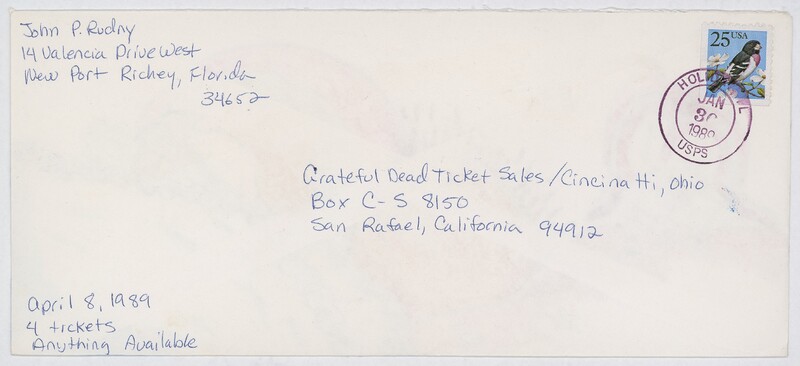 John P. Rudny
14 Valencia Drive West
New Port Richey, Florida
34652
25 USA
JAN
30
1989
USPS
Grateful Dead Ticket Sales/Cincinatti, Ohio
Box C-S 8150
San Rafael, California 94912
April 8, 1989
4 tickets
Anything Available